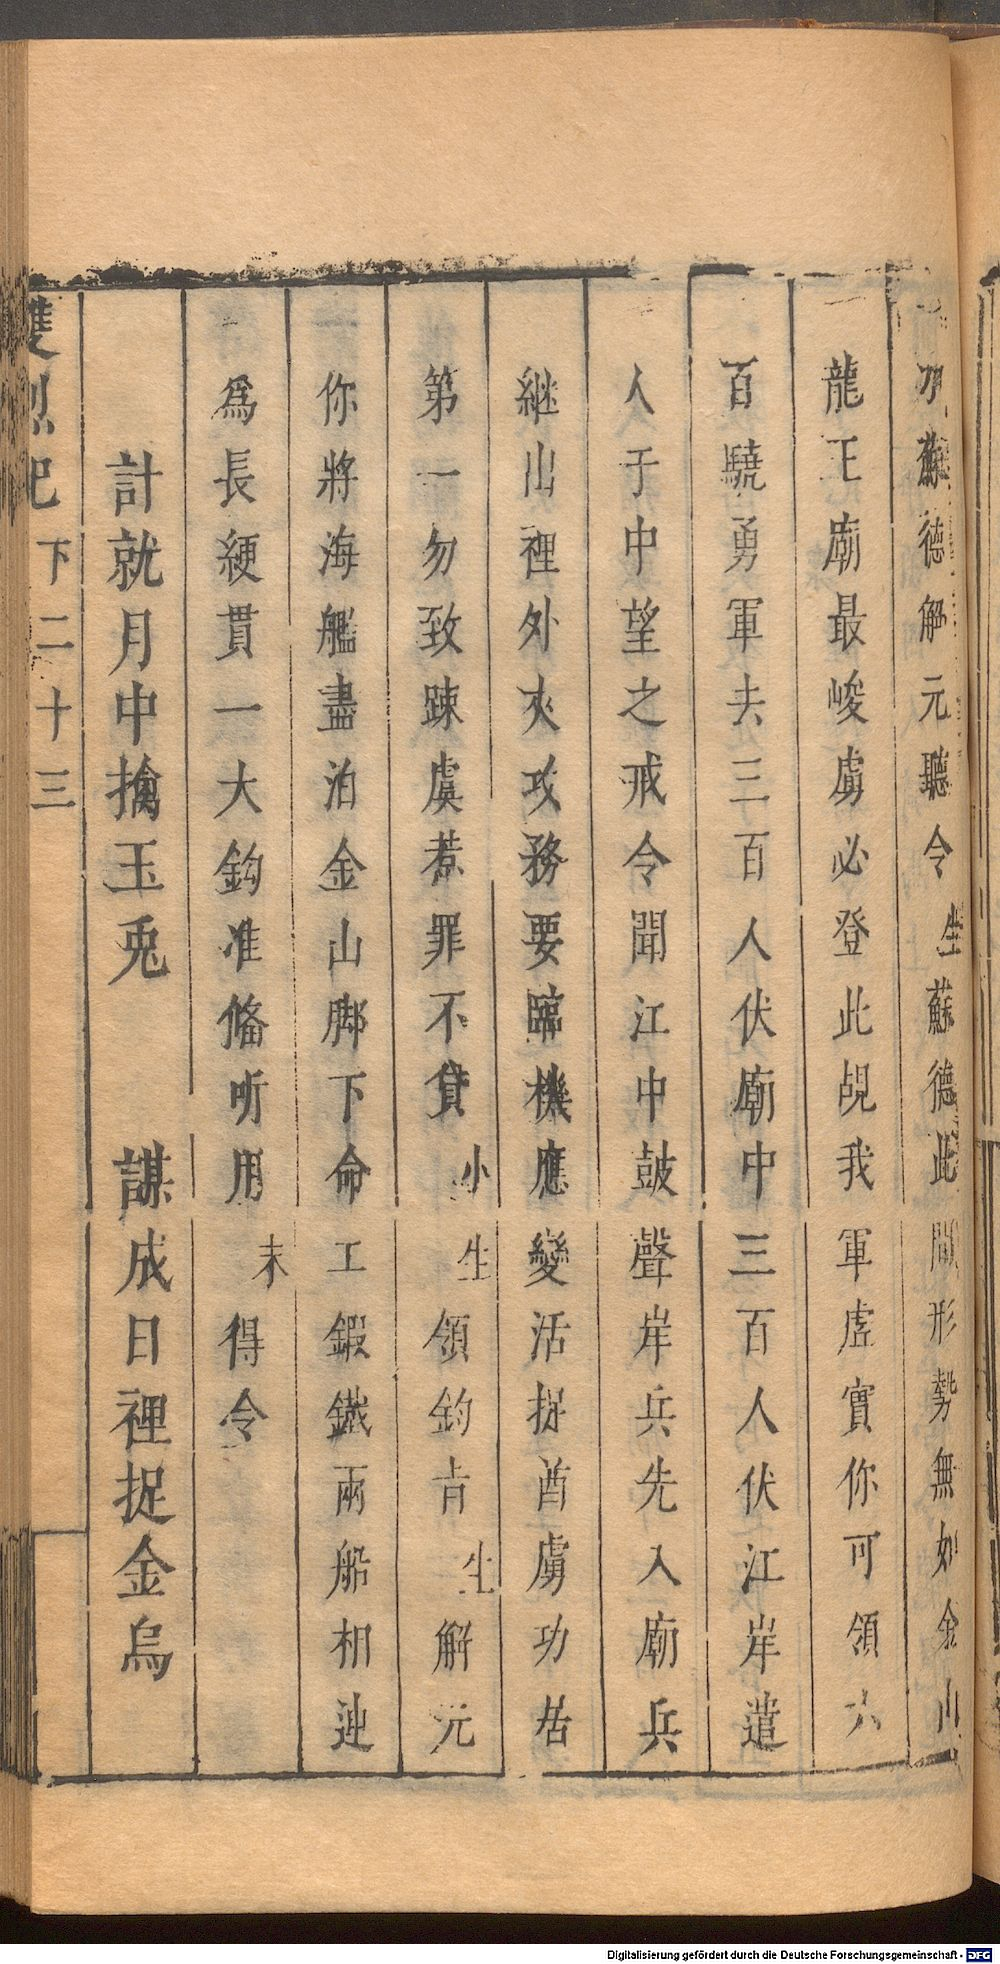 蘇德解元聽令生蘇德此間形勢無如金山
龍王廟最峻虜必登此覘我軍虛實你可領六
百驍勇軍去三百人伏廟中三百人伏江岸遣
人于中望之戒令聞江中鼓聲岸兵先入廟兵
継出裡外夾攻務要臨機應變活捉酋虜功居
第一勿致踈虞惹罪不貸小生領鈞旨生解元
你將海艦盡泊金山脚下命工鍜鐵兩船相連
爲長綆貫一大鈎准備听用末得令
計就月中擒玉兎 謀成日裡捉金烏
雙烈記 下二十三
Digitalisierung gefördert durch die Deutsche Forschungsgemeinschaft - DFG